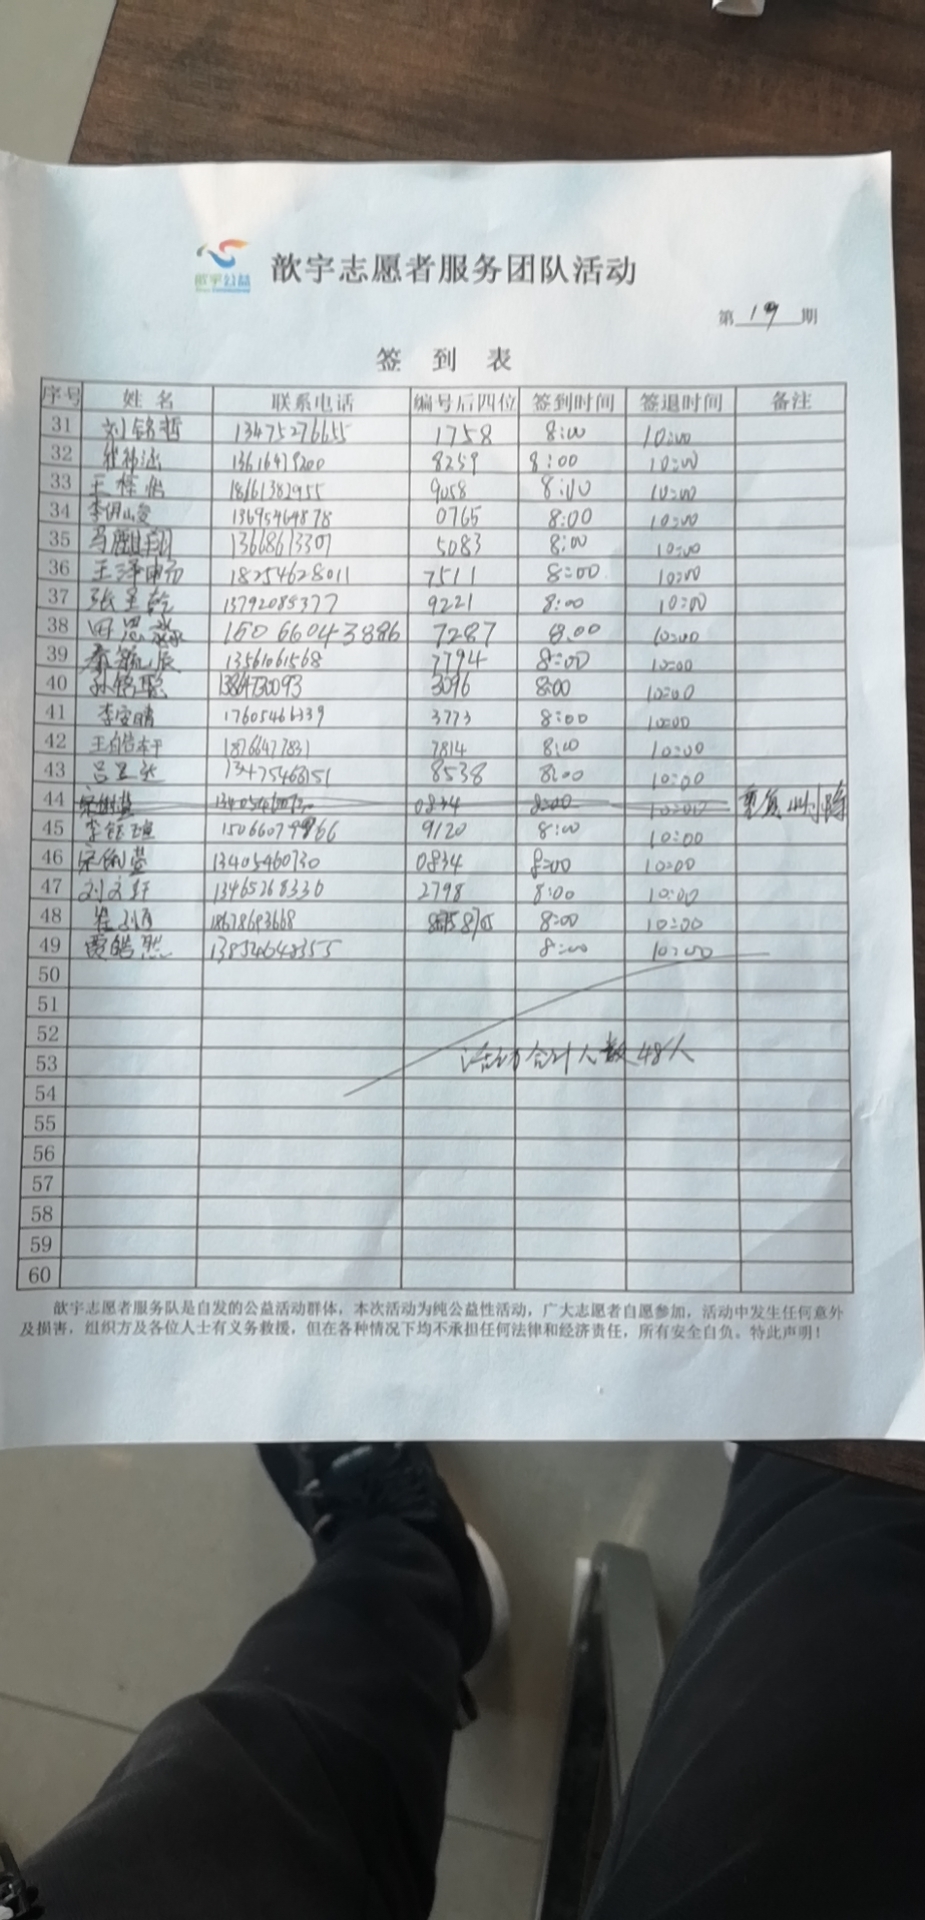 歆宇公益
歆宇志愿者服务团队活动
第 19 期
签 到 表
序号 姓名 联系电话 编号后四位 签到时间 签退时间 备注
31 刘铭哲 13475276655 1758 8:00 10:00
32 8259 8:00 10:00
33 王 18661382955 9058 8:00 10:00
34 李 13695464878 0765 8:00 10:00
35 马麒翔 13668613307 5083 8:00 10:00
36 王泽 18254628011 7511 8:00 10:00
37 张 13792085377 9221 8:00 10:00
38 田思淼 7287 8:00 10:00
39 秦毓辰 13561061568 7794 8:00 10:00
40 孙铭聪 3096 8:00 10:00
41 李安晴 3773 8:00 10:00
42 王皓轩 18766477831 7814 8:00 10:00
43 吕 8538 8:00 10:00
44 0834 8:00 10:00 重复 删除
45 李钰瑄 9120 8:00 10:00
46 13405460730 0834 8:00 10:00
47 刘文轩 13465268330 2798 8:00 10:00
48 崔 18678693668 8:00 10:00
49 贾皓然 8:00 10:00
50
51
52
53 活动合计人数48人
54
55
56
57
58
59
60
歆宇志愿者服务队是自发的公益活动群体，本次活动为纯公益性活动，广大志愿者自愿参加，活动中发生任何意外
及损害，组织方及各位人士有义务救援，但在各种情况下均不承担任何法律和经济责任，所有安全自负。特此声明！